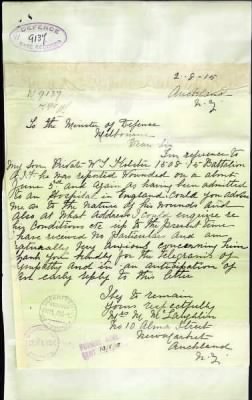 DEFENCE
9137
2-8-15
Auckland
N.Z
N 9137
To the Minister of Defence
Melbourne
Dear Sir
In reference to
my Son Private W J 1508 15 Battalion
A.I.F. he was reported Wounded on a about
June 5th and Again as having been admitted
to an Hospital in England. Could you advise
me as to the Nature of his Wounds and
also at What Address I could enquire re
his Conditions etc up to the Present time
have received No particulars and am
naturally Very Anxious concerning him
thank you kindly for the Telegrams of
Sympathy and in an anticipation of
an early reply to this letter
I beg to remain
Yours respectfully
Mrs M McLaughlin
No 10 Alma Street
Newmarket
Auckland
N.Z.